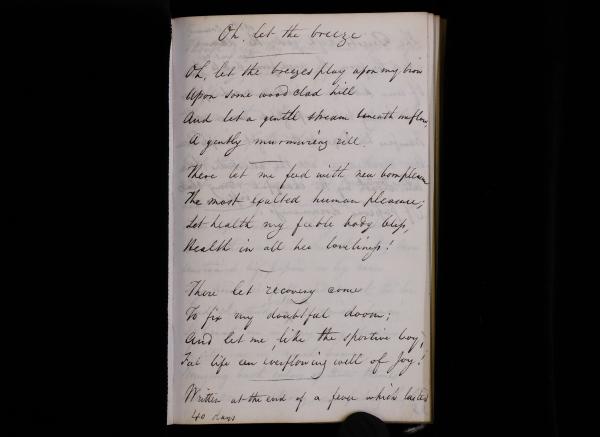 Oh, let the breeze
Oh, let the breezes play upon my brow
Upon some wood clad hill
And let a gentle stream beneath me flow,
A gently murmuring rill.
There let me feel with new born pleasure
The most exalted human pleasure;
Let health my feeble body bless,
Health in all her loveliness!
There let recovery come
To fix my doubtful doom;
And let me, like the sportive boy,
Feel life an overflowing well of Joy!
Written at the end of a fever which lasted
40 days